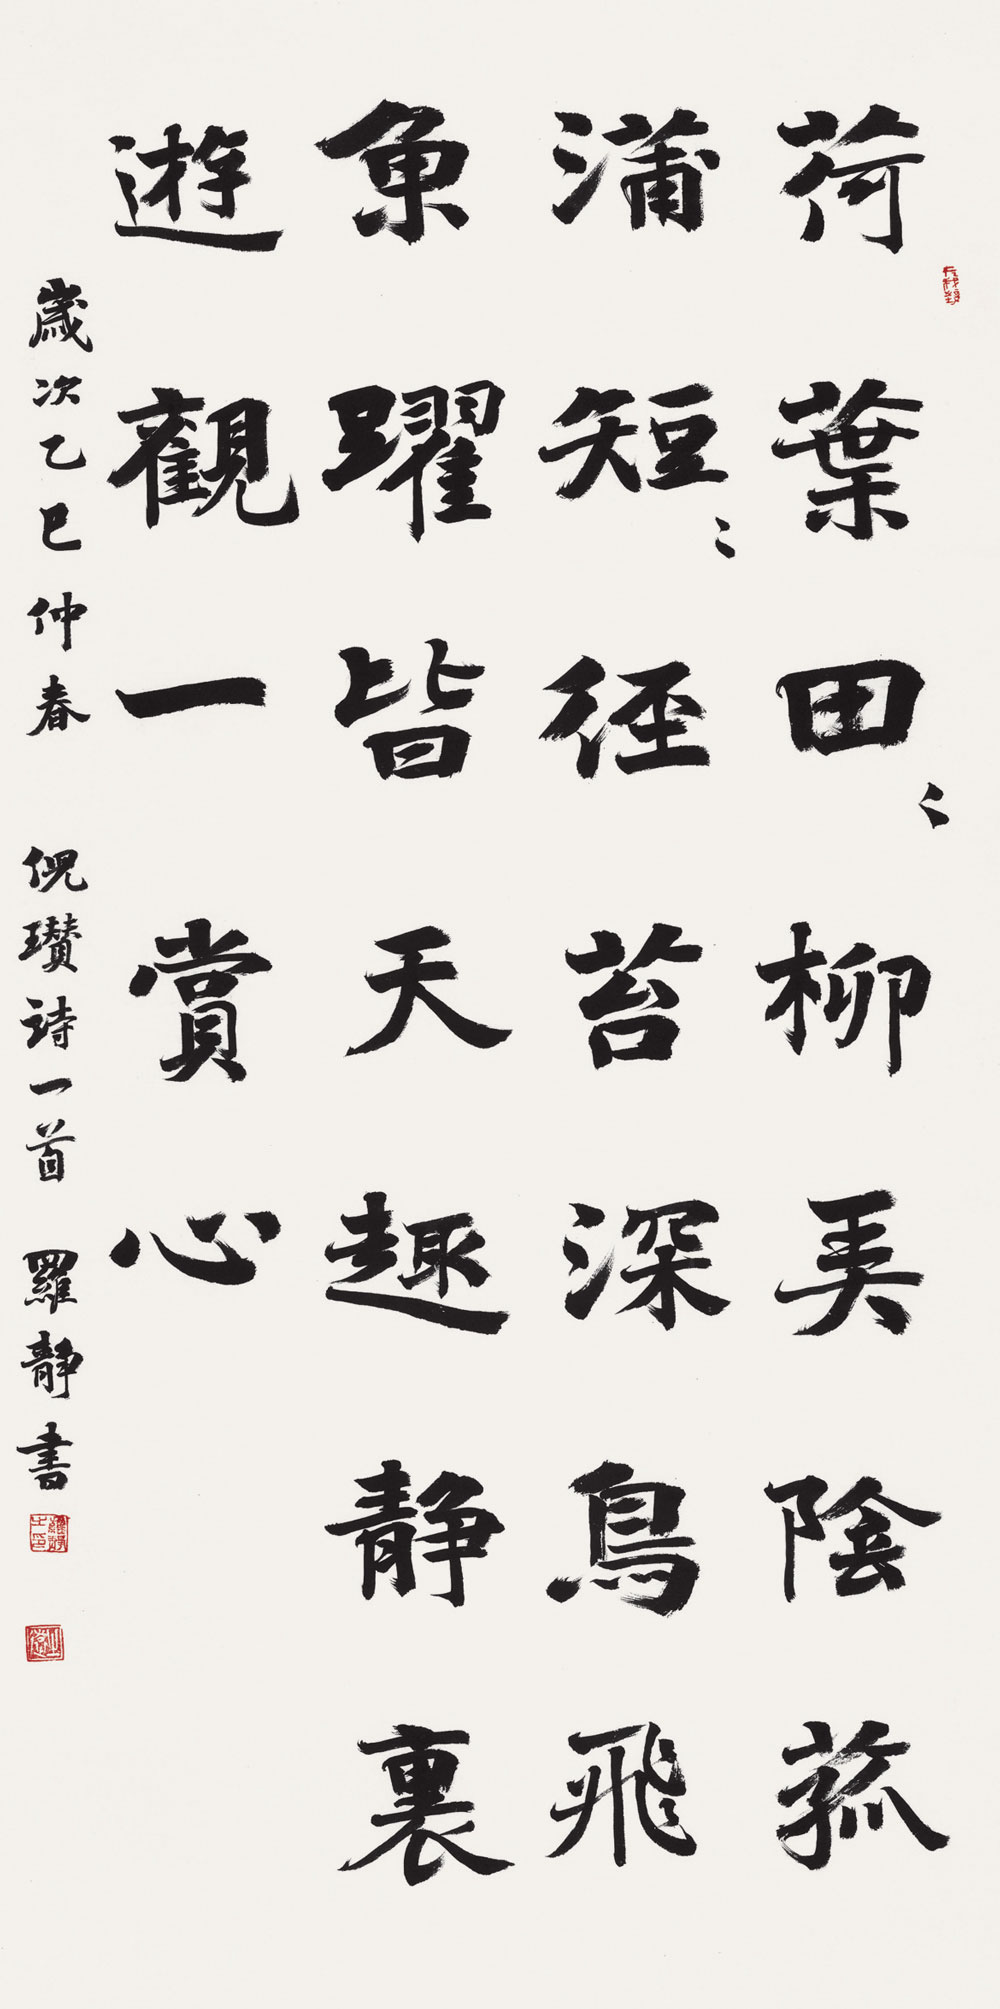 荷葉田〻柳弄陰菰
蒲短〻徑苔深鳥飛
魚躍皆天趣静裏
遊觀一賞心
歲次乙巳仲春 倪瓚詩一首 羅静書